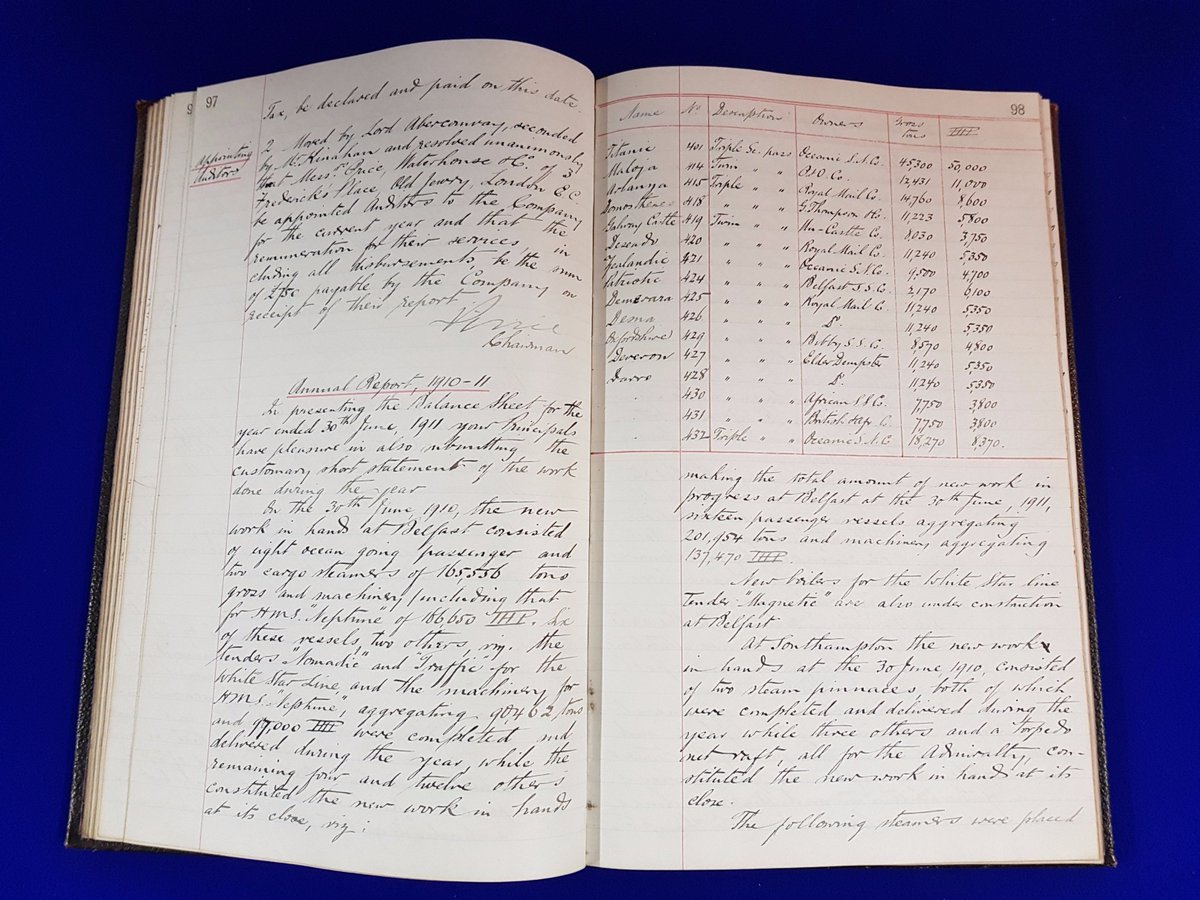 97
Tax, be declared and paid on this date.
Appointing
Auditors
2 Moved by Lord Aberconway, seconded
by Mr Kinahan and resolved unanimously
that Messrs Price, Waterhouse & Co. of 3
Frederick's Place, Old Jewry, London E.C.
be appointed Auditors to the Company
for the current year and that the
remuneration for their services, in
cluding all disbursements, be the sum
of payable by the Company on
receipt of their report.
Chairman
Annual Report, 1910-11
In presenting the Balance Sheet for the
year ended 30th June, 1911 your Principals
have pleasure in also submitting the
customary short statement of the work
done during the year
On the 30th June, 1910, the new
work in hands at Belfast consisted
of eight ocean going passenger and
two cargo steamers of 165,556 tons
gross and machinery (including that
for H.M.S. "Neptune" of 186650 IHP. Six
of these vessels, two others, viz. the
tenders "Nomadic" and "Traffic" for the
White Star Line and the machinery for
H.M.S. "Neptune", aggregating tons
and 97,000 IHP were completed and
delivered during the year, while the
remaining four and twelve others
constituted the new work in hands
at its close, viz:
98
Name No. Description Owners Gross tons IHP
Titanic 401 Triple Sc. pass Oceanic S.N.Co. 45300 50,000
Maloja 414 Twin " " P&O. Co. 12,431 11,000
Arlanza 415 Triple " " Royal Mail Co. 14,760 8,600
Demosthenes 418 " " " G. Thompson & Co. 11,223 5800
Galway Castle 419 Twin " " Un-Castle Co. 8,030 3,750
Deseado 420 " " " Royal Mail Co. 11,240 5,350
Zealandic 421 " " " Oceanic S.N.Co. 9,500 4,700
Patriotic 424 " " " Belfast S.S.Co. 2,170 6,100
Demerara 425 " " " Royal Mail C. 11,240 5350
Desna 426 " " " Do. 11,240 5,350
Oxfordshire 429 " " " Bibby S.S.C. 8,590 4,800
Deveron 427 " " " Elder Dempster 11,240 5,350
Darro 428 " " " Do. 11,240 5350
430 " " " African S.S.Co. 7,750 3,800
431 " " " British & Af. C. 7,750 3,800
432 Triple " " Oceanic S.N.C 18,270 8,370.
making the total amount of new work in
progress at Belfast at the 30th June, 1911,
sixteen passenger vessels aggregating
201,954 tons and machinery aggregating
137,470 IHP.
New boilers for the White Star Line
tender "Magnetic" are also under construction
at Belfast
At Southampton the new work
in hands at the 30 June 1910, consisted
of two steam pinnaces, both of which
were completed and delivered during the
year while three others and a torpedo
net raft, all for the Admiralty, con-
stituted the new work in hands at its
close.
The following steamers were placed